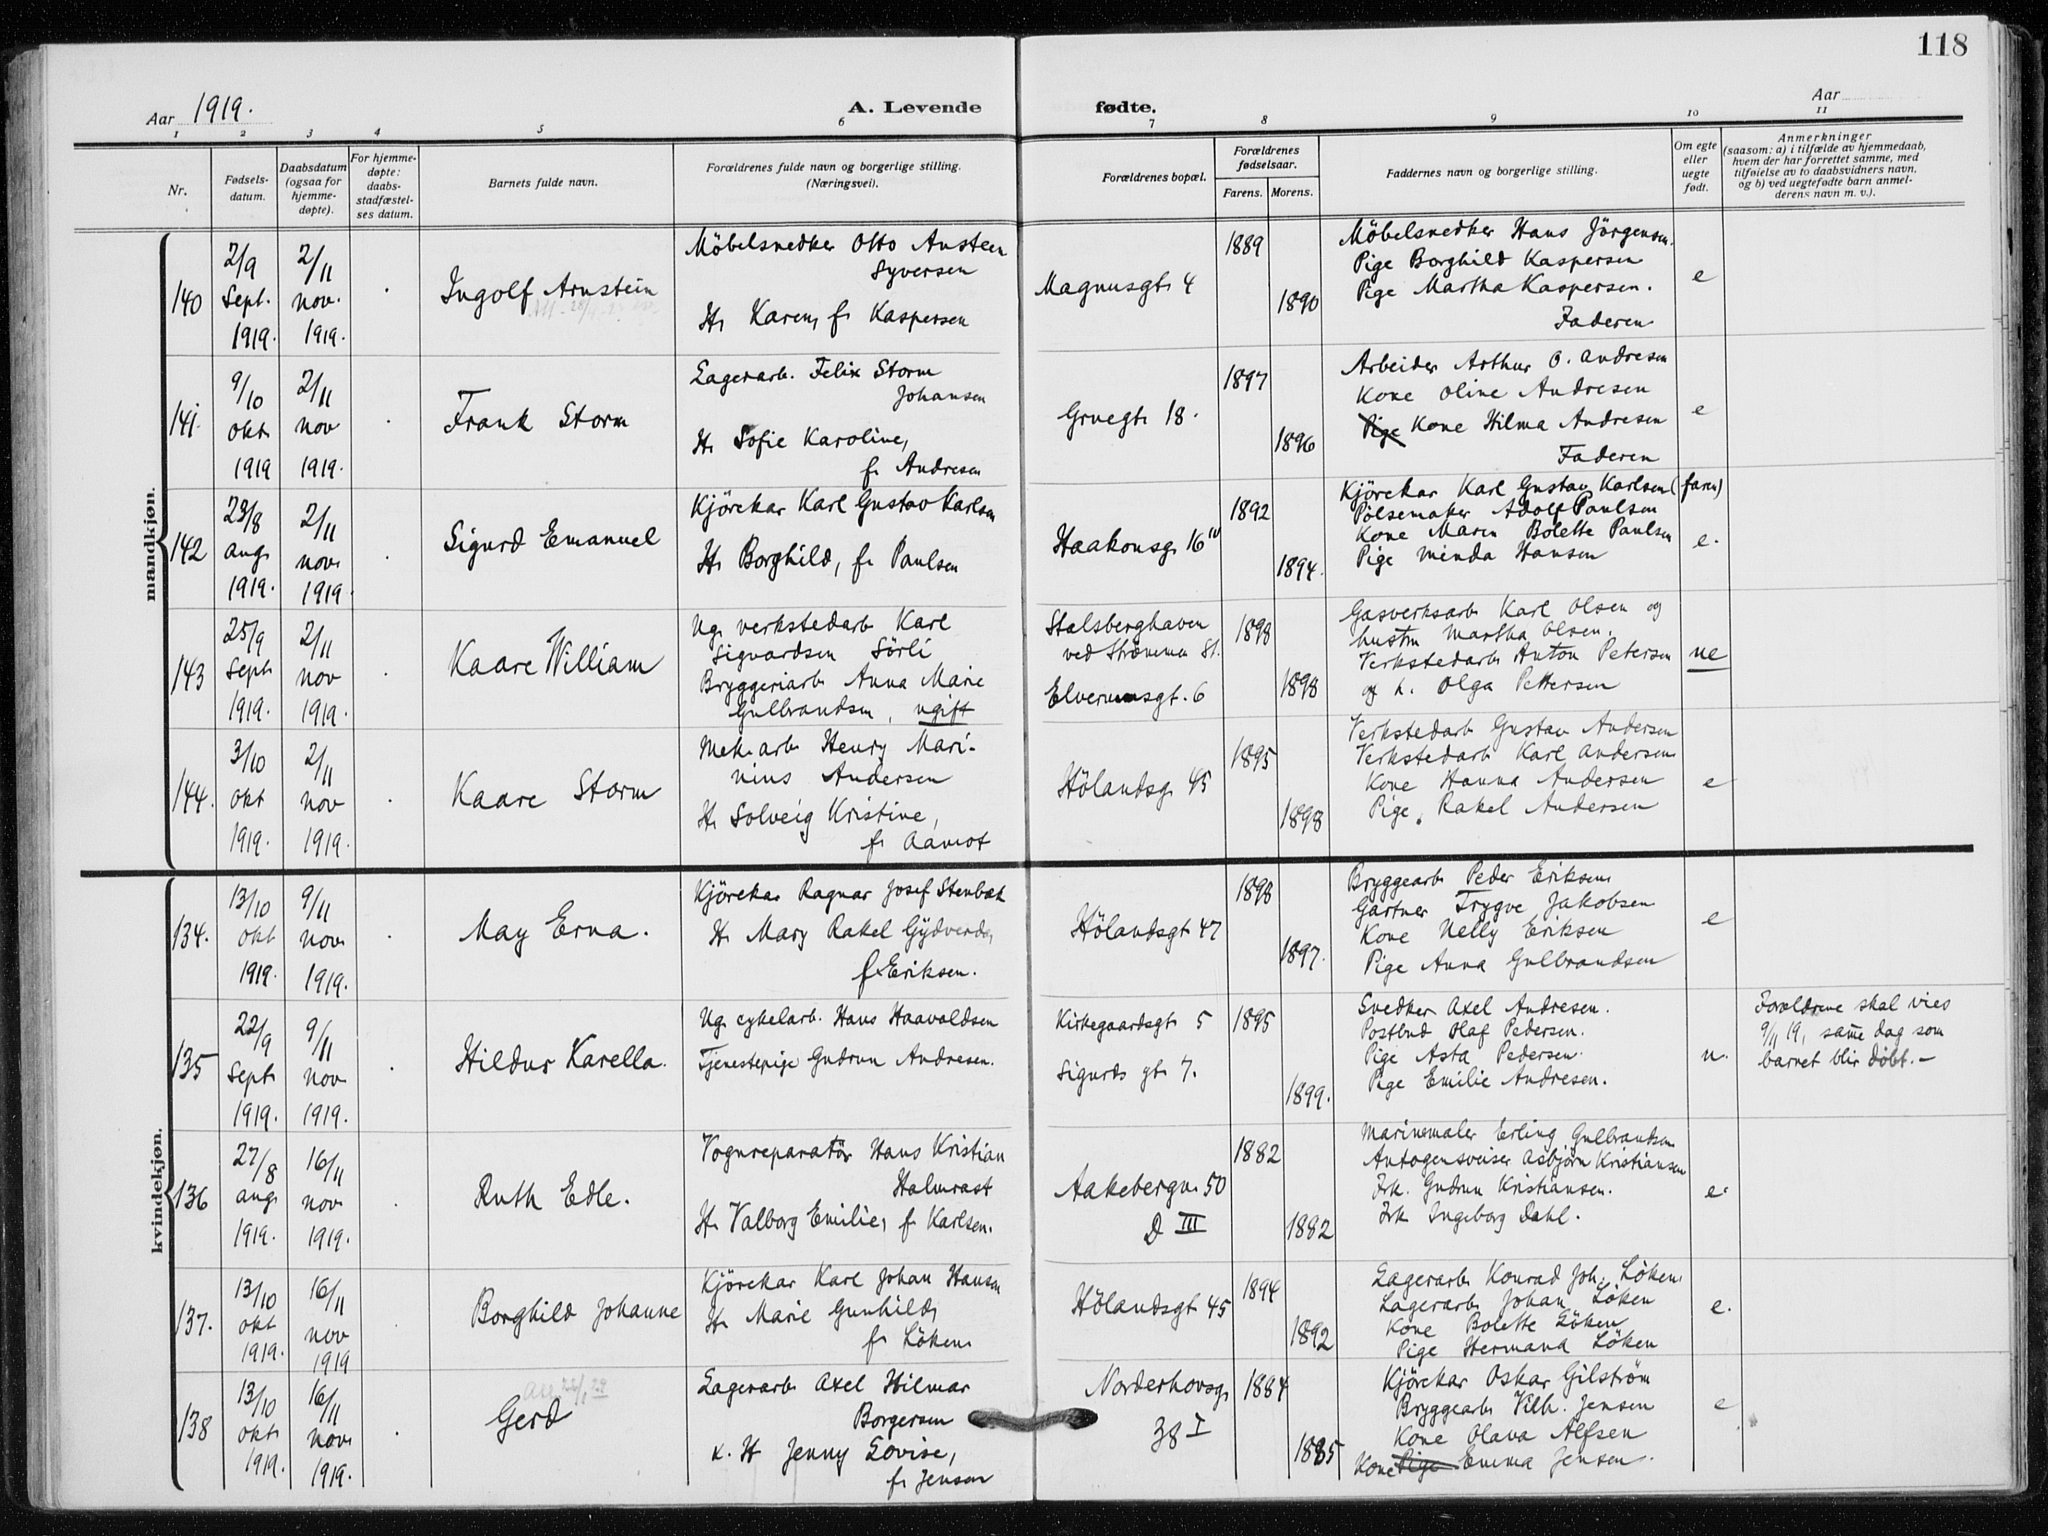 118
Aar 1919.
A. Levende fødte.
Aar
1 2 3 4 5 6 7 8 9 10 11
Nr.
Fødselsdatum.
Daabsdatum (ogsaa for hjemmedøpte).
For hjemmedøpte: daabsstadfæstelses datum.
Barnets fulde navn.
Forældrenes fulde navn og borgerlige stilling. (Næringsvei).
Forældrenes bopæl.
Forældrenes fødselsaar.
Farens. Morens.
Faddernes navn og borgerlige stilling.
Om egte eller uegte født.
Anmerkninger
(saasom: a) i tilfælde av hjemmedaab,
hvem der har forrettet samme, med
tilføielse av to daabsvidners navn,
og b) ved uegtefødte barn anmelderens navn m. v.).
mandkjøn.
140
2/9
Sept.
1919.
2/11
nov.
1919.
Ingolf Arnstein
Möbelsnedker Otto Austeen
Syversen
H. Karen, f. Kaspersen
Magnusgt. 4
1889
1890
Möbelsnedker Hans Jörgensen.
Pige Borghild Kaspersen
Pige Martha Kaspersen.
Faderen
e
141.
9/10
okt
1919
2/11
nov
1919.
Frank Storm
Lagerarb. Felix Storm
Johansen
H. Sofie Karoline,
f. Andresen
Gruegt. 18.
1897
1896
Arbeider Arthur O. Andresen
Kone Oline Andresen
Pige Kone Hilma Andresen
Faderen
e
142
23/8
aug.
1919.
2/11
nov.
1919.
Sigurd Emanuel
Kjörekar Karl Gustav Karlsen
H. Borghild, f. Paulsen
Haakonsg. 16 IV
1892
1894.
Kjörekar Karl Gustav Karlsen (faren)
Pölsemaker Adolf Paulsen
Kone Maren Bolette Paulsen
Pige Minda Hansen
e.
143
25/9
Sept.
1919.
2/11
nov
1919.
Kaare William
Ug. verkstedarb. Karl
Sigvardsen Sörli
Bryggeriarb. Anna Marie
Gulbrandsen, ugift
Stalsberghaven
ved Strömmen St.
Elverumsgt. 6
1898
1898
Gasverksarb. Karl Olsen og
hustru Martha Olsen.
Verkstedarb. Anton Petersen
og h. Olga Pettersen
ue
144.
3/10
okt
1919.
2/11
nov
1919.
Kaare Storm
Mek. arb. Henry Mari-
nius Andersen
H. Solveig Kristine,
f. Aamot
Hölandsg. 45
1895
1898
Verkstedarb Gustav Andersen
Verkstedarb Karl Andersen
Kone Hanna Andersen
Pige Rakel Andersen
e
kvindekjøn.
134.
13/10
okt
1919.
9/11
nov.
1919.
May Erna.
Kjörekar Ragnar Josef Stenbæk
H. Mary Rakel Gydverda,
f. Eriksen.
Hölandsgt 47
1898
1897.
Bryggearb. Peder Eriksen
Gartner Trygve Jakobsen
Kone Nelly Eriksen
Pige Anna Gulbrandsen
e
135
22/9
Sept.
1919.
9/11
nov
1919.
Hildur Karella.
Ug. cykelarb. Hans Haavaldsen
Tjenestepige Gudrun Andresen.
Kirkegaardsgt. 5
Sigurds gt. 7.
1895
1899.
Snedker Axel Andresen.
Postbud Olaf Pedersen.
Pige Asta Pedersen.
Pige Emilie Andresen.
u.
Forældrene skal vies
9/11 19, samme dag som
barnet blir döbt.—
136
27/8
aug.
1919.
16/11
nov.
1919.
Ruth Edle.
Vognreparatör Hans Kristian
Halmrast
H. Valborg Emilie, f. Karlsen.
Aakebergv. 50
D III
1882
1882
Marinemaler Erling Gulbrandsen
Autogensveiser Asbjörn Kristiansen
Frk. Gudrun Kristiansen.
Frk. Ingeborg Dahl.
e.
137.
13/10
okt
1919.
16/11
nov
1919
Borghild Johanne
Kjörekar Karl Johan Hansen
H. Marie Gunhild,
f. Löken
Hölandsgt 45
1894
1892
Lagerarb. Konrad Joh. Löken
Lagerarb. Johan Löken
Kone Bolette Löken
Pige Hermana Löken
e.
138
13/10
okt
1919.
16/11
nov.
1919.
Gerd
Lagerarb. Axel Hilmar
Borgersen
H. Jenny Lovise,
f. Jensen
Norderhovsg.
38 I
1884
1885
Kjörekar Oskar Gilström
Bryggearb. Vilh. Jensen
Kone Olava Alfsen
Kone Pige Emma Jensen.
e